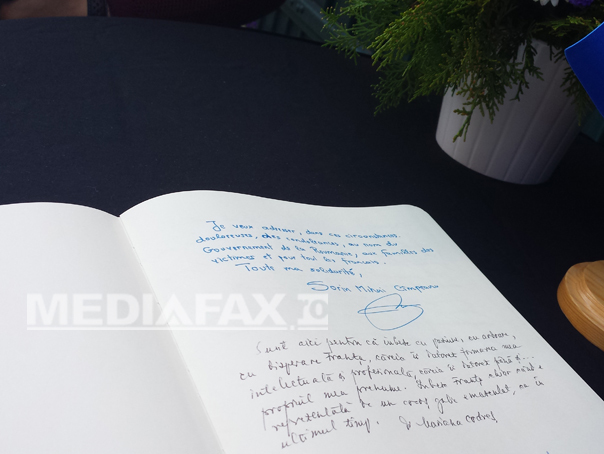 Je veux adresser, dans ces circonstances
douloureuses, des condoléances, au nom du
Gouvernement de la Roumanie, aux familles des
victimes et pour tous les français.
Toute ma solidarité,
Sorin Mihai Cîmpeanu
MEDIAFAX
Sunt aici pentru că iubesc cu pasiune, cu
cu disperare Franța, căreia îi datorez formarea mea
intelectuală și profesională, căreia îi datorez până și
propriul meu prenume. Iubesc Franța
reprezentată de un cocoș galic
ultimul timp. Mariana Codruț